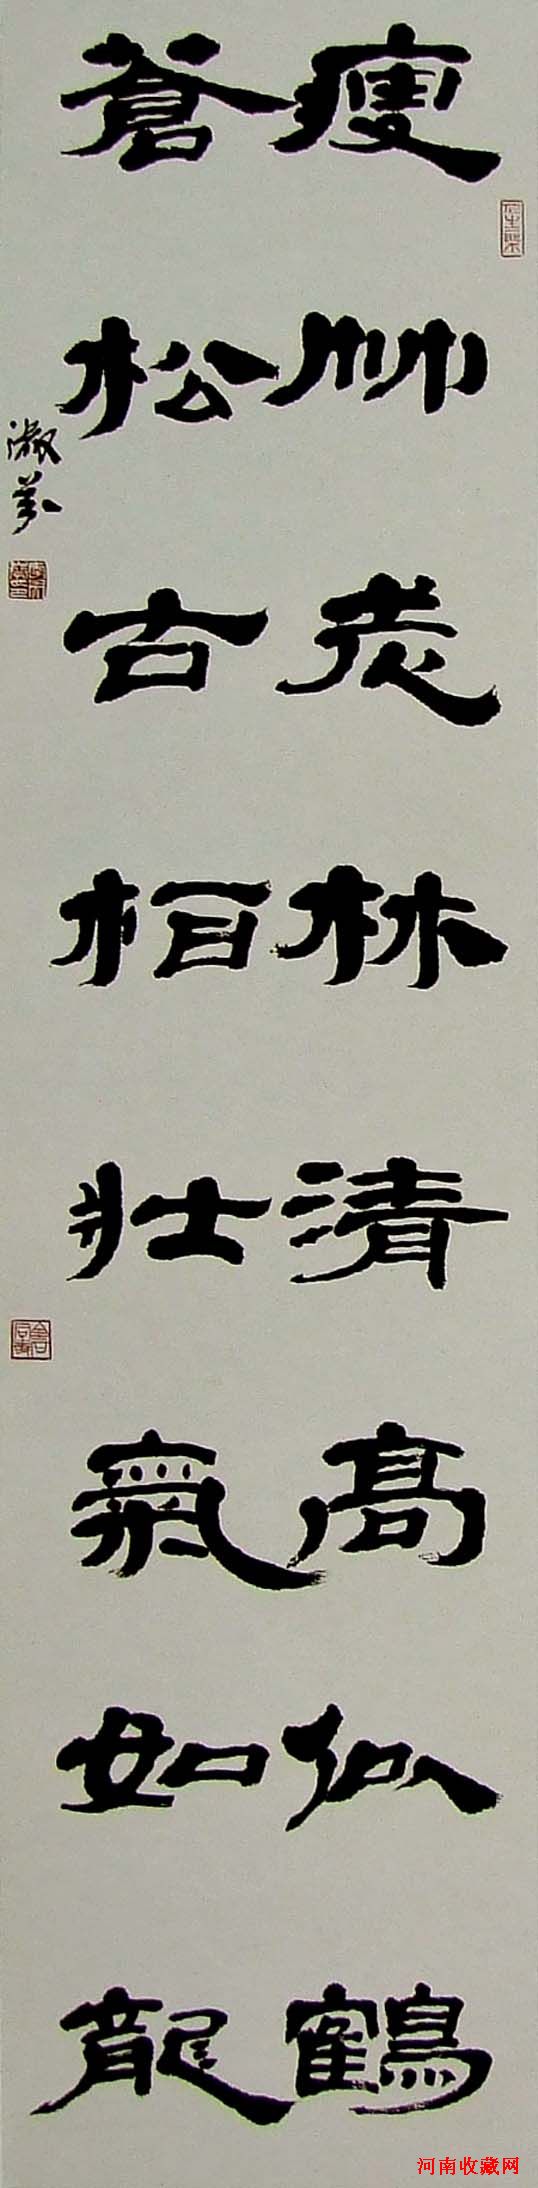 瘦竹老林清高似鶴
蒼松古柏壯氣如龍
淑
河南收藏网